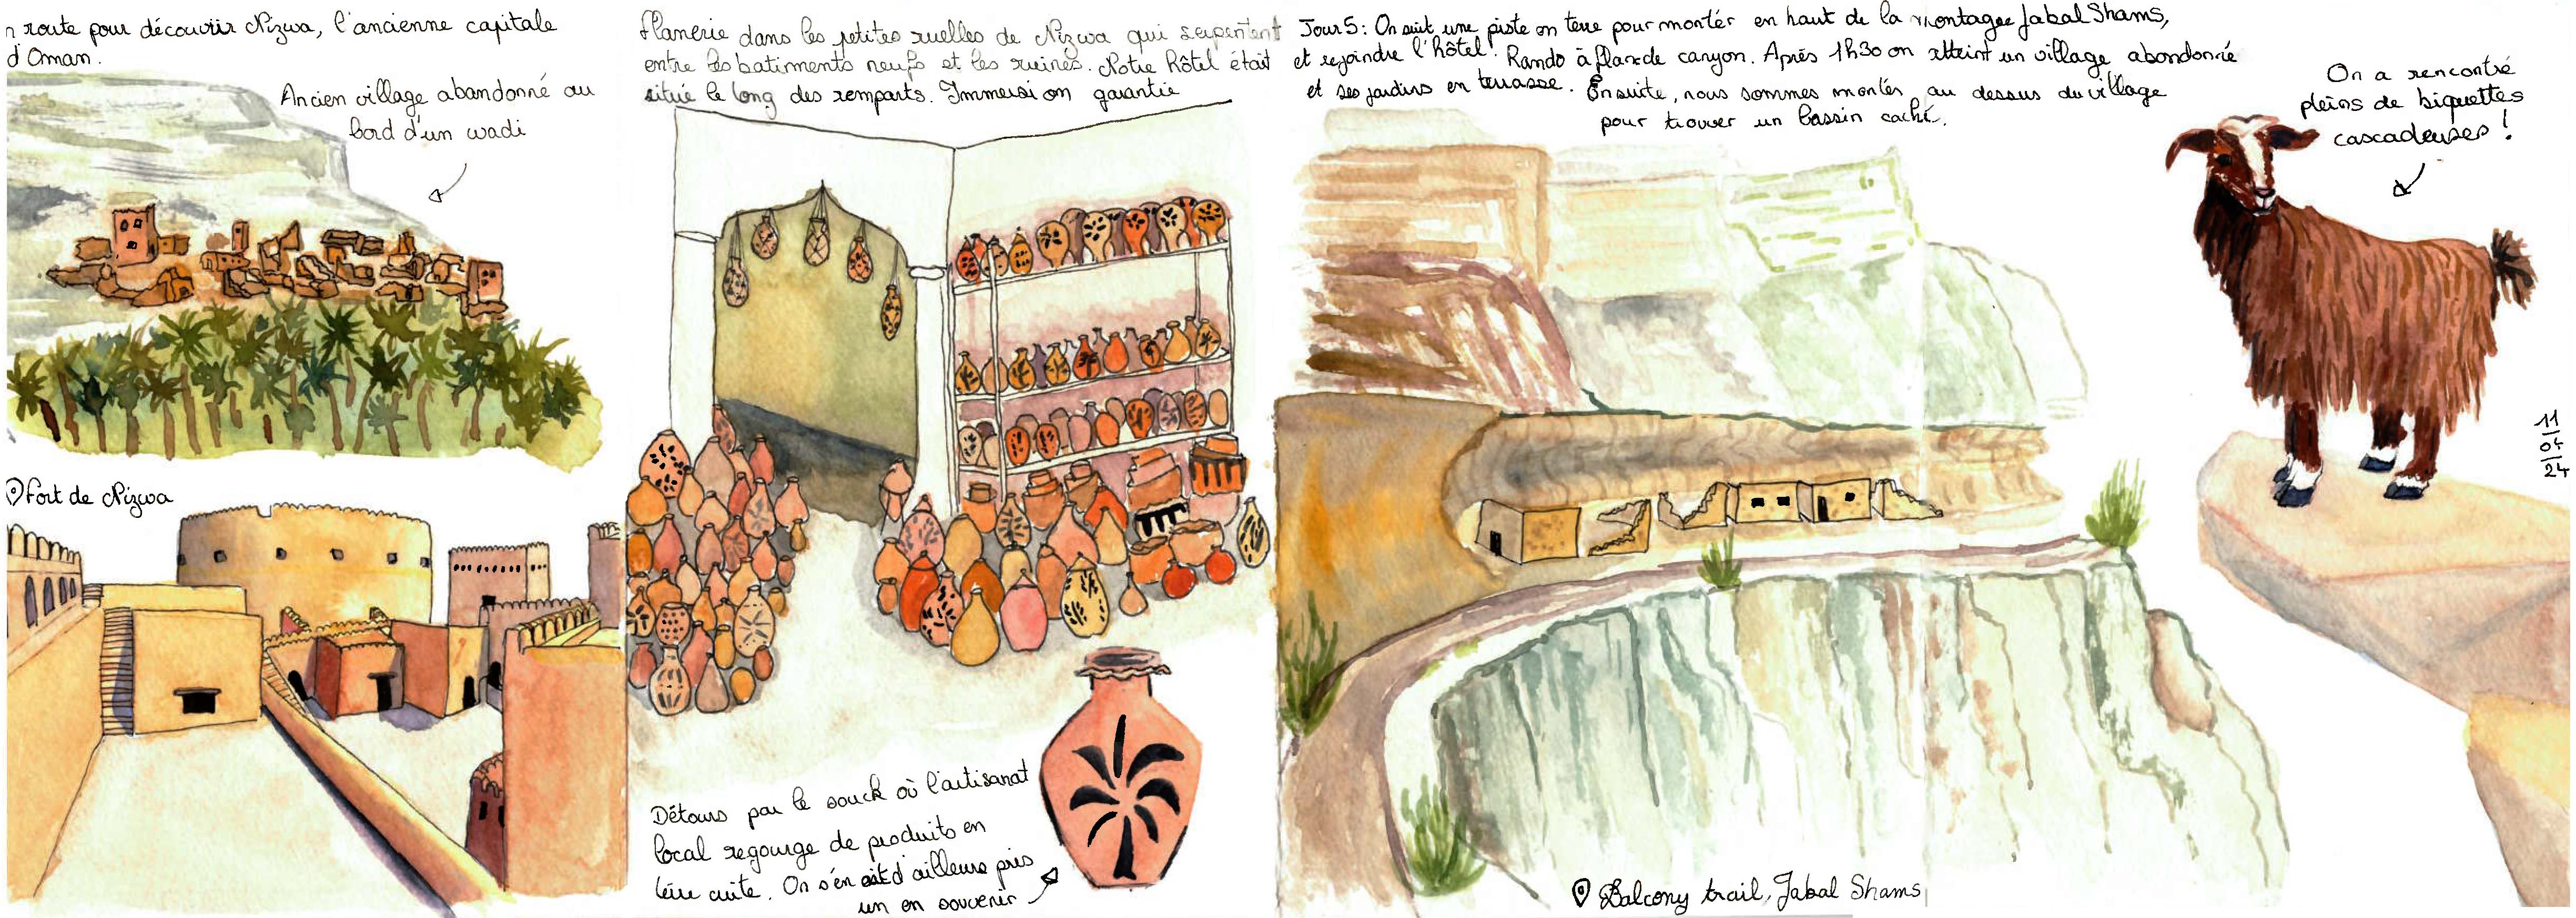 n route pour découvrir Nizwa, l'ancienne capitale
d'Oman.
Ancien village abandonné au
bord d'un wadi
Fort de Nizwa
Flanerie dans les petites ruelles de Nizwa qui serpentent
entre les batiments neufs et les ruines. Notre hôtel était
situé le long des remparts. Immersion garantie
Détour par le souck où l'artisanat
local regorge de produits en
terre cuite. On s'en est d'ailleurs pris
un en souvenir
Jour 5: On suit une piste en terre pour monter en haut de la montagne Jabal Shams,
et rejoindre l'hôtel! Rando à flanc de canyon. Après 1h30 on atteint un village abandonné
et ses jardins en terrasse. Ensuite, nous sommes montés au dessus du village
pour trouver un bassin caché.
On a rencontré
pleins de biquettes
cascadeuses!
11
04
24
Balcony trail, Jabal Shams